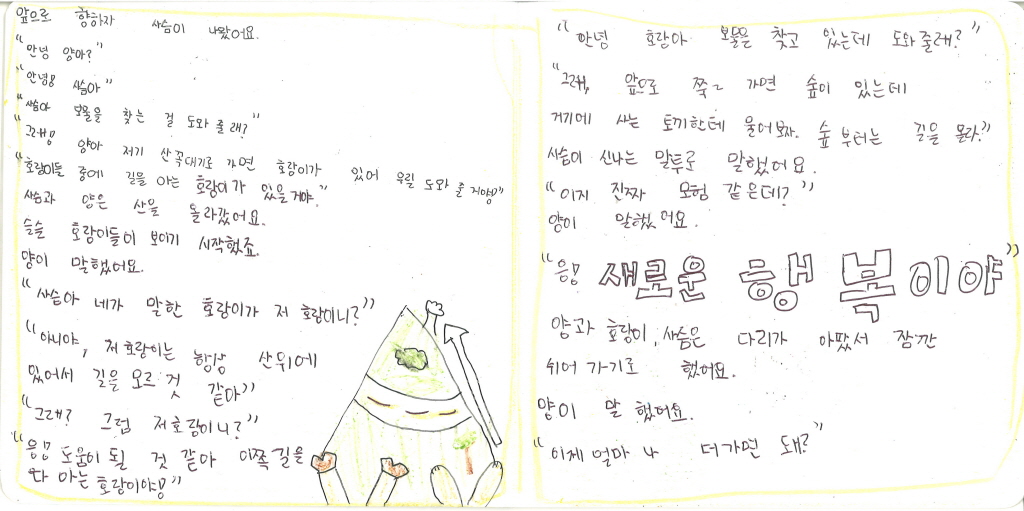 앞으로 향하자 사슴이 나왔어요.
"안녕 양아?"
"안녕! 사슴아"
"사슴아 보물을 찾는 걸 도와줄래?"
"그래! 양아 저기 산꼭대기로 가면 호랑이가 있어 우릴 도와줄거야!"
"호랑이들 중에 길을 아는 호랑이가 있을거야."
사슴과 양은 산을 올라갔어요.
슬슬 호랑이들이 보이기 시작했죠.
양이 말했어요.
"사슴아 네가 말한 호랑이가 저 호랑이니?"
"아니야, 저 호랑이는 항상 산위에
있어서 길을 모르 것 같아"
"그래? 그럼 저호랑이니?"
"응! 도움이 될 것 같아 이쪽길을
다 아는 호랑이야!"
"안녕 호랑아 보물을 찾고 있는데 도와줄래?"
"그래, 앞으로 쭉 가면 숲이 있는데
거기에 사는 토끼한테 물어보자. 숲 부터는 길을 몰라?"
사슴이 신나는 말투로 말했어요.
"이거 진짜 모험 같은데?"
양이 말했어요.
"응! 새로운 행복이야"
양과 호랑이, 사슴은 다리가 아팠서 잠깐
쉬어 가기로 했어요.
양이 말 했어요.
"이제 얼마나 더가면 돼?"